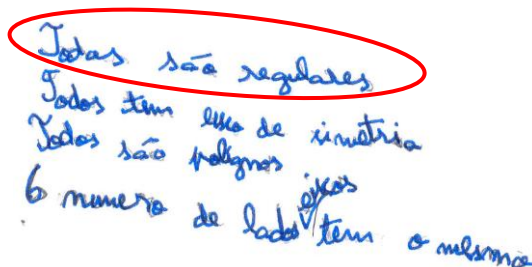 Todas são regulares
Todos tem eixo de simetria
Todos são polignos
O numero de lados eixos tem o mesmo